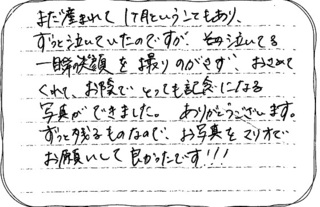 まだ産まれて1ヶ月ということもあり、
ずっと泣いていたのですが、泣いてる
一瞬笑顔を撮りのがさず、おさめて
くれて、お陰でとっても記念になる
写真ができました。ありがとうございます。
ずっと残るものなので、お写真をマリオで
お願いして良かったです!!!